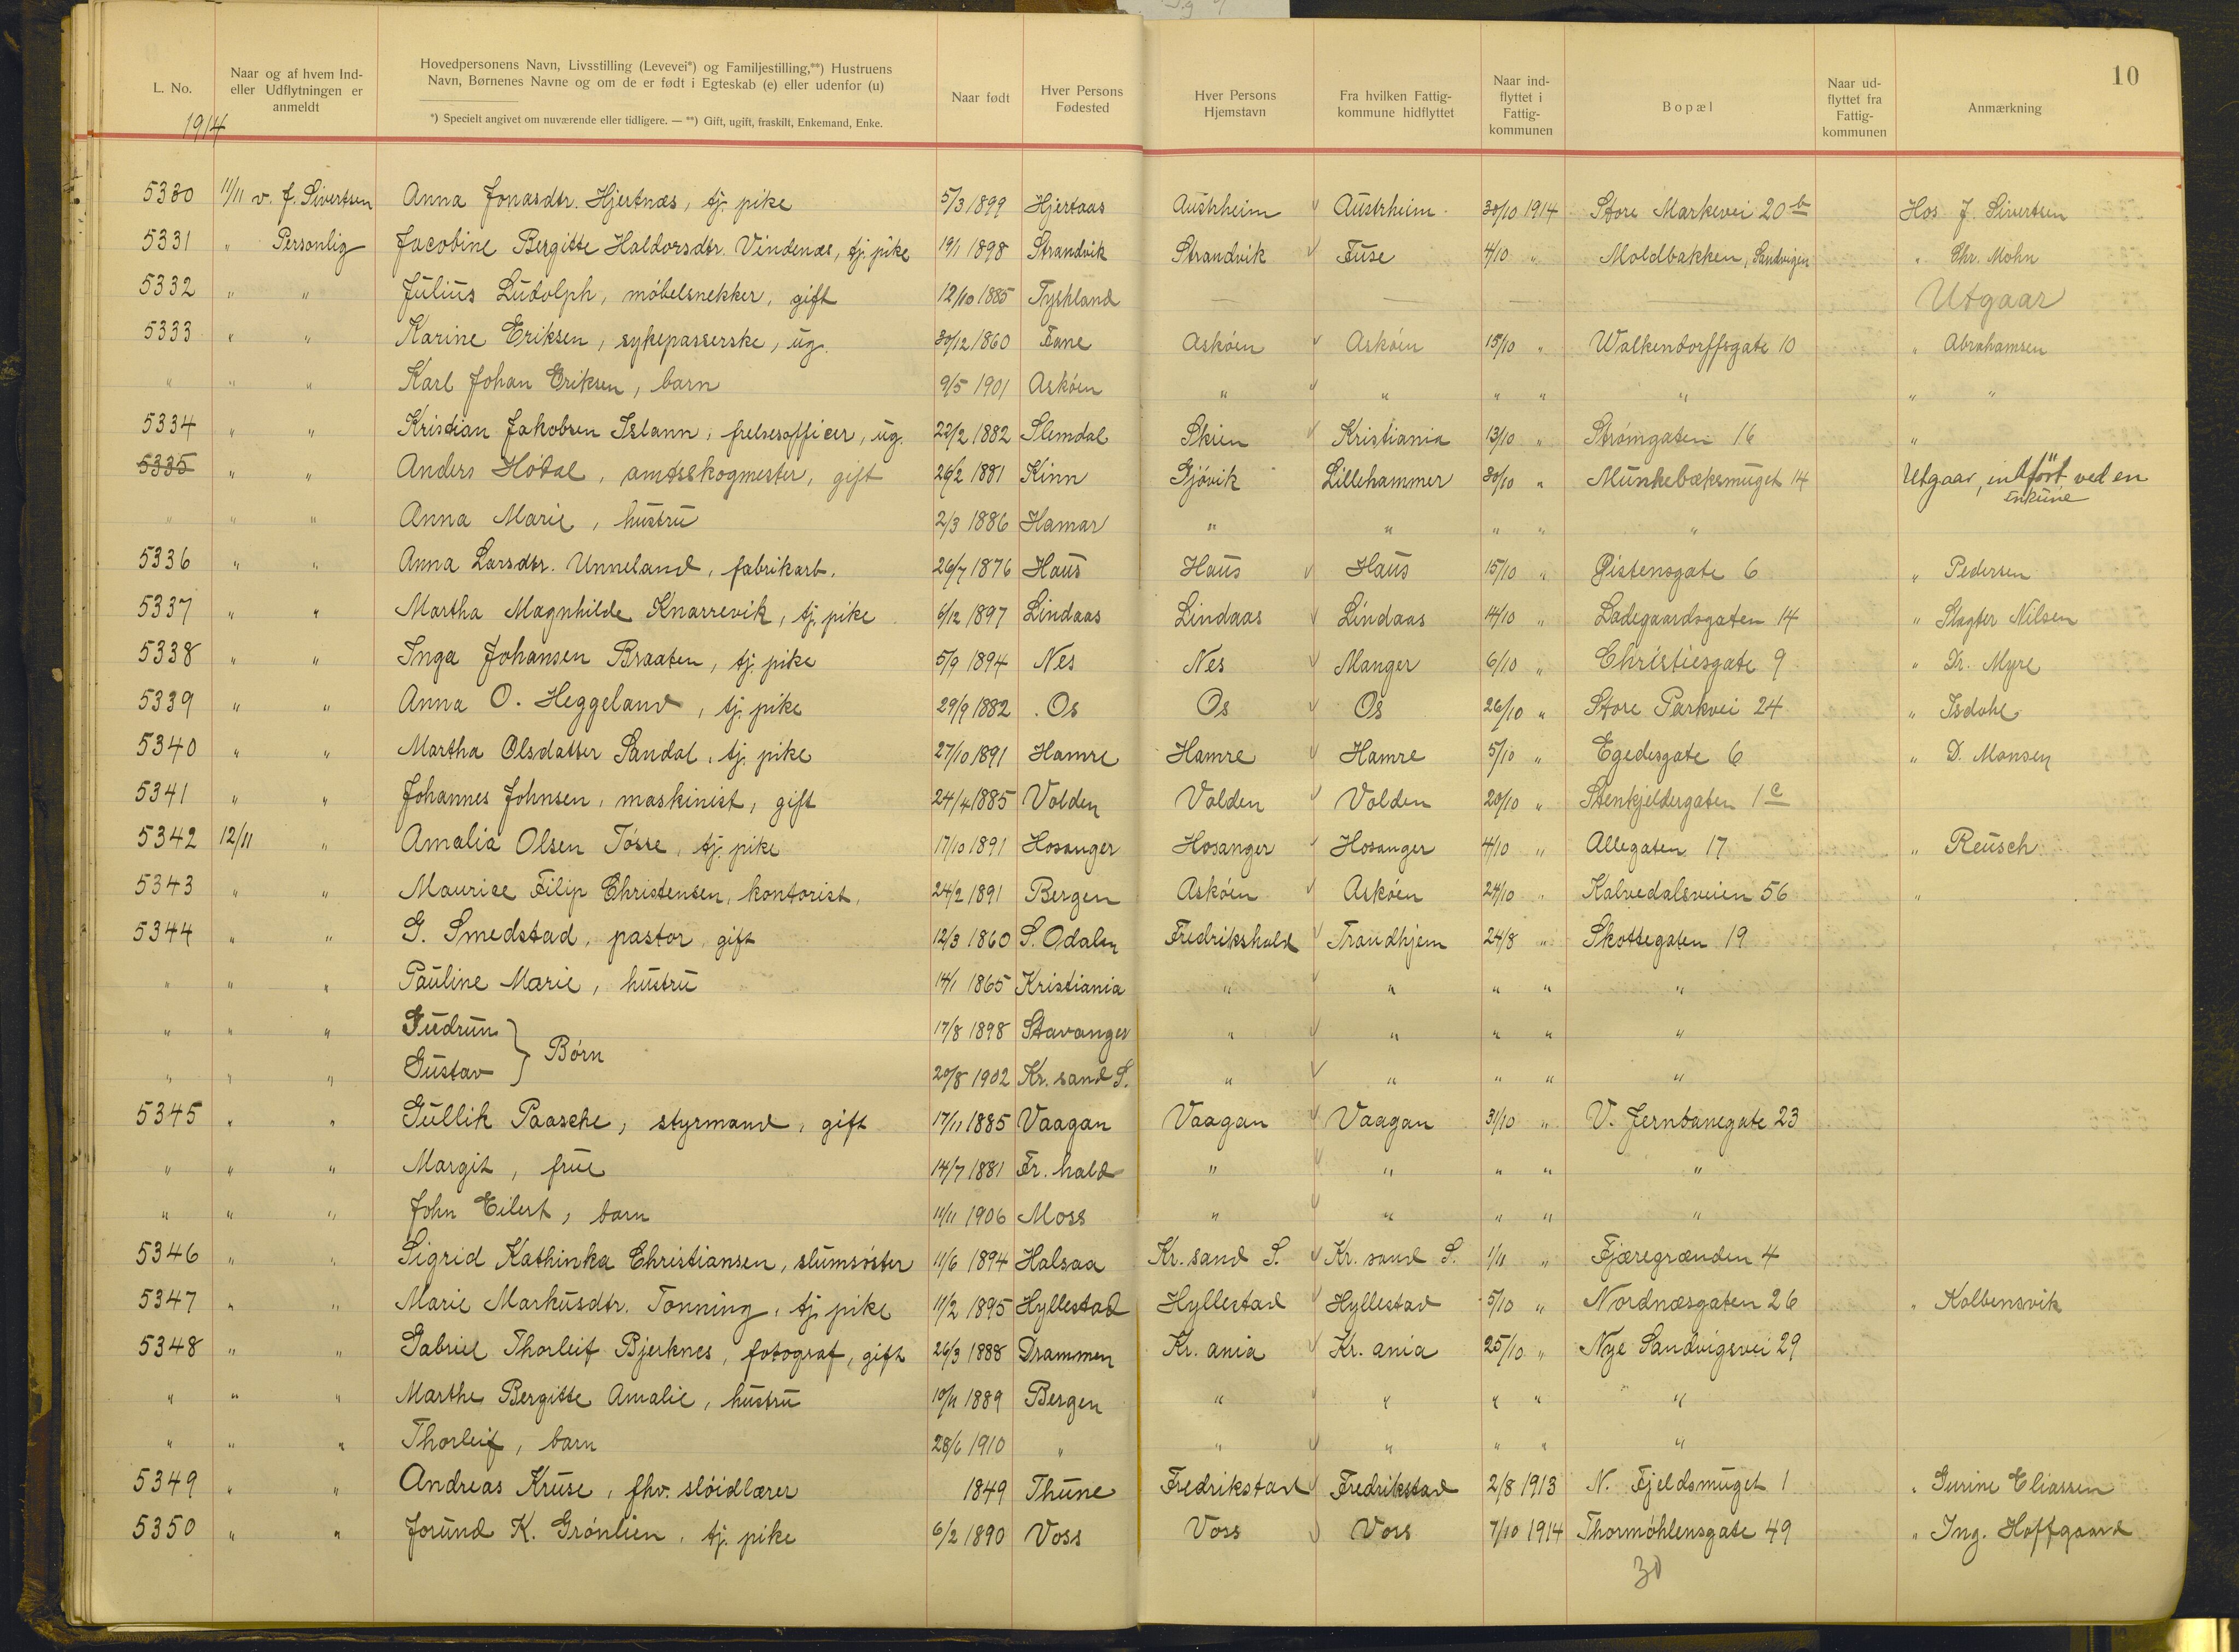 10
L. No.
Naar og af hvem Ind- eller Udflytningen er anmeldt
Hovedpersonens Navn, Livsstilling (Levevei*) og Familjestilling,**) Hustruens Navn, Børnenes Navne og om de er født i Egteskab (e) eller udenfor (u)
*) Specielt angivet om nuværende eller tidligere. — **) Gift, ugift, fraskilt, Enkemand, Enke.
Naar født
Hver Persons Fødested
Hver Persons Hjemstavn
Fra hvilken Fattig- kommune hidflyttet
Naar ind- flyttet i Fattig- kommunen
Bopæl
Naar ud- flyttet fra Fattig- kommunen
Anmærkning
1914
5330 11/11 v. J. Sivertsen Anna Jonasdtr. Hjertnæs, tj. pike 5/3 1899 Hjertaas Austrheim Austrheim 30/10 1914 Store Markevei 20 b Hos J. Sivertsen
5331 " Personlig Jacobine Bergitte Haldorsdtr. Vindenæs, tj. pike 19/1 1898 Strandvik Strandvik Fuse 4/10 " Moldbakken, Sandvigen " Chr. Mohn
5332 " " Julius Ludolph, møbelsnekker, gift 12/10 1885 Tyskland — — — Utgaar
5333 " " Karine Eriksen, sykepasserske, ug. 30/12 1860 Fane Askøen Askøen 15/10 " Walkendorffsgate 10 " Abrahamsen
" " " Karl Johan Eriksen, barn 9/5 1901 Askøen " " " " " " "
5334 " " Kristian Jakobsen Islann, frelsesofficer, ug. 22/2 1882 Slemdal Skien Kristiania 13/10 " Strømgaten 16 "
5335 " " Anders Hødal, amtsskogmester, gift 26/2 1881 Kinn Gjøvik Lillehammer 30/10 " Munkebæksmuget 14 Utgaar, indført ved en
" " " Anna Marie, hustru 2/3 1886 Hamar " " " " "
5336 " " Anna Larsdtr. Unneland, fabrikarb. 26/7 1876 Haus Haus Haus 15/10 " Gistensgate 6 " Pedersen
5337 " " Martha Magnhilde Knarrevik, tj. pike 6/12 1897 Lindaas Lindaas Lindaas 14/10 " Ladegaardsgaten 14 " Slagter Nilsen
5338 " " Inga Johansen Braaten, tj. pike 5/9 1894 Nes Nes Manger 6/10 " Christiesgate 9 " Dr. Myre
5339 " " Anna O. Heggeland, tj. pike 29/9 1882 Os Os Os 26/10 " Store Parkvei 24 " Isdahl
5340 " " Martha Olsdatter Sandal, tj. pike 27/10 1891 Hamre Hamre Hamre 5/10 " Egedesgate 6 " D. Monsen
5341 " " Johannes Johnsen, maskinist, gift 24/4 1885 Volden Volden Volden 20/10 " Stenkjeldergaten 1 c
5342 12/11 " Amalia Olsen Tøsse, tj. pike 17/10 1891 Hosanger Hosanger Hosanger 4/10 " Allegaten 17 " Reusch
5343 " " Maurice Filip Christensen, kontorist, 24/2 1891 Bergen Askøen Askøen 24/10 " Kalvedalsveien 56 "
5344 " " G. Smedstad, pastor, gift 12/3 1860 S. Odalen Fredrikshald Trondhjem 24/8 " Skottegaten 19
" " " Pauline Marie, hustru 14/1 1865 Kristiania " " " " "
" " " Gudrun } Børn 17/8 1898 Stavanger " " " " "
" " " Gustav 20/8 1902 Kr. sand S. " " " " "
5345 " " Gullik Paasche, styrmand, gift 17/11 1885 Vaagan Vaagan Vaagan 31/10 " V. Jernbanegate 23
" " " Margit, frue 14/7 1881 Fr. hald " " " " "
" " " John Eilert, barn 11/11 1906 Moss " " " " "
5346 " " Sigrid Kathinka Christiansen, slumsøster 11/6 1894 Halsaa Kr. sand S. Kr. sand S. 1/11 " Fjæregrænden 4
5347 " " Marie Markusdtr. Tonning, tj. pike 11/2 1895 Hyllestad Hyllestad Hyllestad 5/10 " Nordnæsgaten 26 " Kolbensvik
5348 " " Gabriel Thorleif Bjerknes, fotograf, gift 26/3 1888 Drammen Kr. ania Kr. ania 25/10 " Nye Sandvigsvei 29
" " " Marthe Bergitte Amalie, hustru 10/11 1889 Bergen " " " " "
" " " Thorleif, barn 28/6 1910 " " " " " "
5349 " " Andreas Kruse, fhv. sløidlærer 1849 Thune Fredrikstad Fredrikstad 2/8 1913 N. Fjeldsmuget 1 " Gurine Eliassen
5350 " " Jorund K. Grønlien, tj. pike 6/2 1890 Voss Voss Voss 7/10 1914 Thormøhlensgate 49 " Ing. Hoffgaard
30